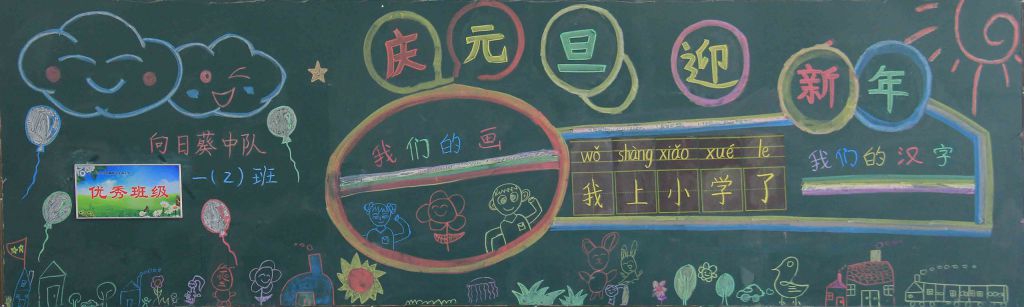 庆元旦迎新年
向日葵中队
一(2)班
优秀班级
我们的画
wǒ shàng xiǎo xué le
我上小学了
我们的汉字